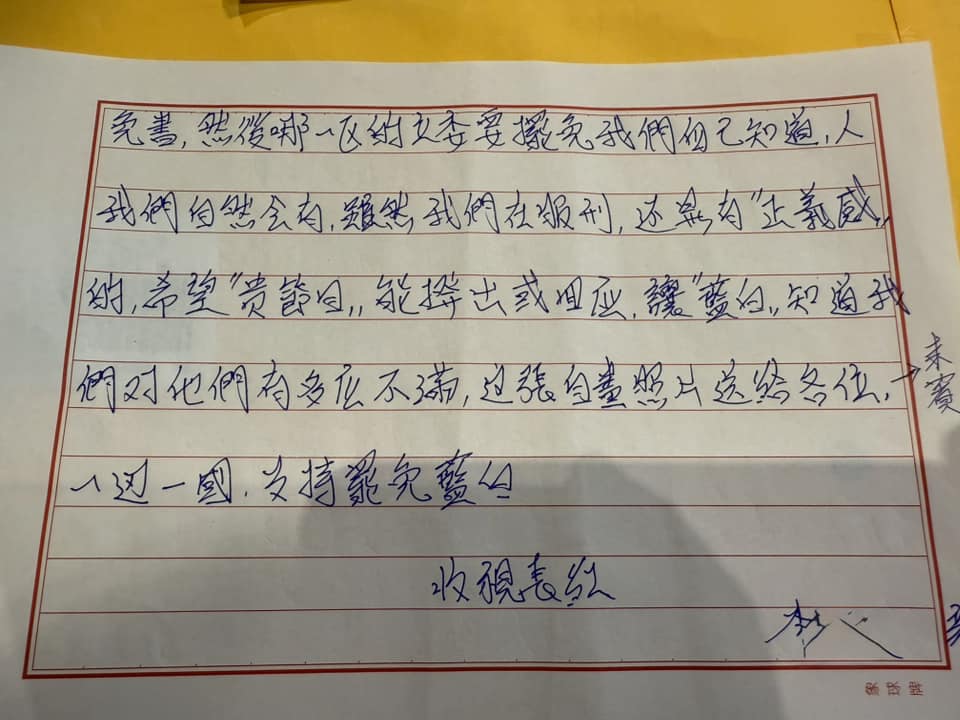 免書,然後哪一区的立委要擺免我們自己知道,人
我們自然会有,雖然我們在服刑,还是有"正義感"
的,希望"贵節目",能播出或回应,讓"藍白",知道我
們对他們有多広不滿,这張自畫照片送給各位,→未賽
一边一國,支持罷免藍白
收視長紅